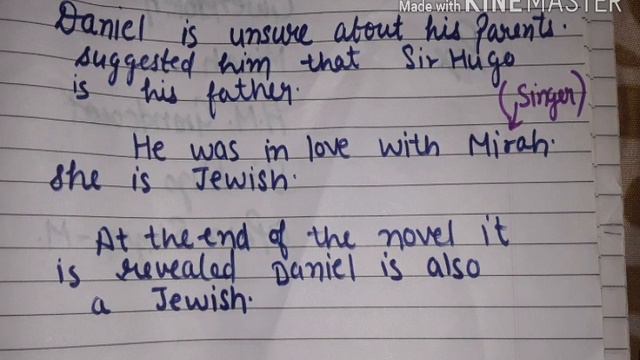 Made with KINEMASTER
Daniel is unsure about his parents.
suggested him that Sir Hugo
is his father.
(Singer)
He was in love with Mirah.
she is Jewish.
At the end of the novel it
is revealed Daniel is also
a Jewish.